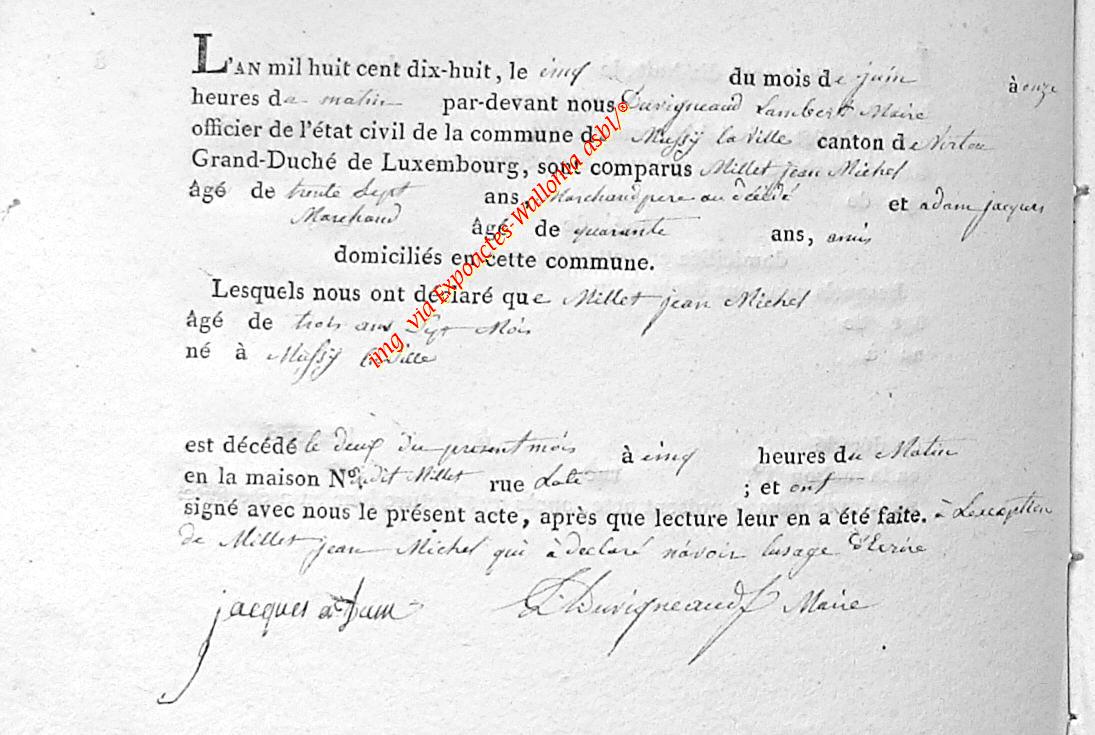 L'AN mil huit cent dix-huit, le cinq du mois de juin à onze
heures du matin par-devant nous Duvigneaud Lambert Maire
officier de l'état civil de la commune de Mussÿ la ville canton de Virton
Grand-Duché de Luxembourg, sont comparus Millet jean Michel
âgé de trente Sept ans, Marchand pere au décédé et adam jacques
Marchand âgé de quarante ans, amis
domiciliés en cette commune.
Lesquels nous ont déclaré que Millet jean Michel
âgé de trois ans Sept Mois
né à Mussÿ la Ville
est décédé le deux du present mois à cinq heures du Matin
en la maison N° dit Millet rue ; et ont
signé avec nous le présent acte, après que lecture leur en a été faite. à Lexception
de Millet jean Michel qui à declaré n'avoir lusage d'Ecrire
jacques adam L Duvigneaud Maire
img via Expoactes-Wallonia asbl/©